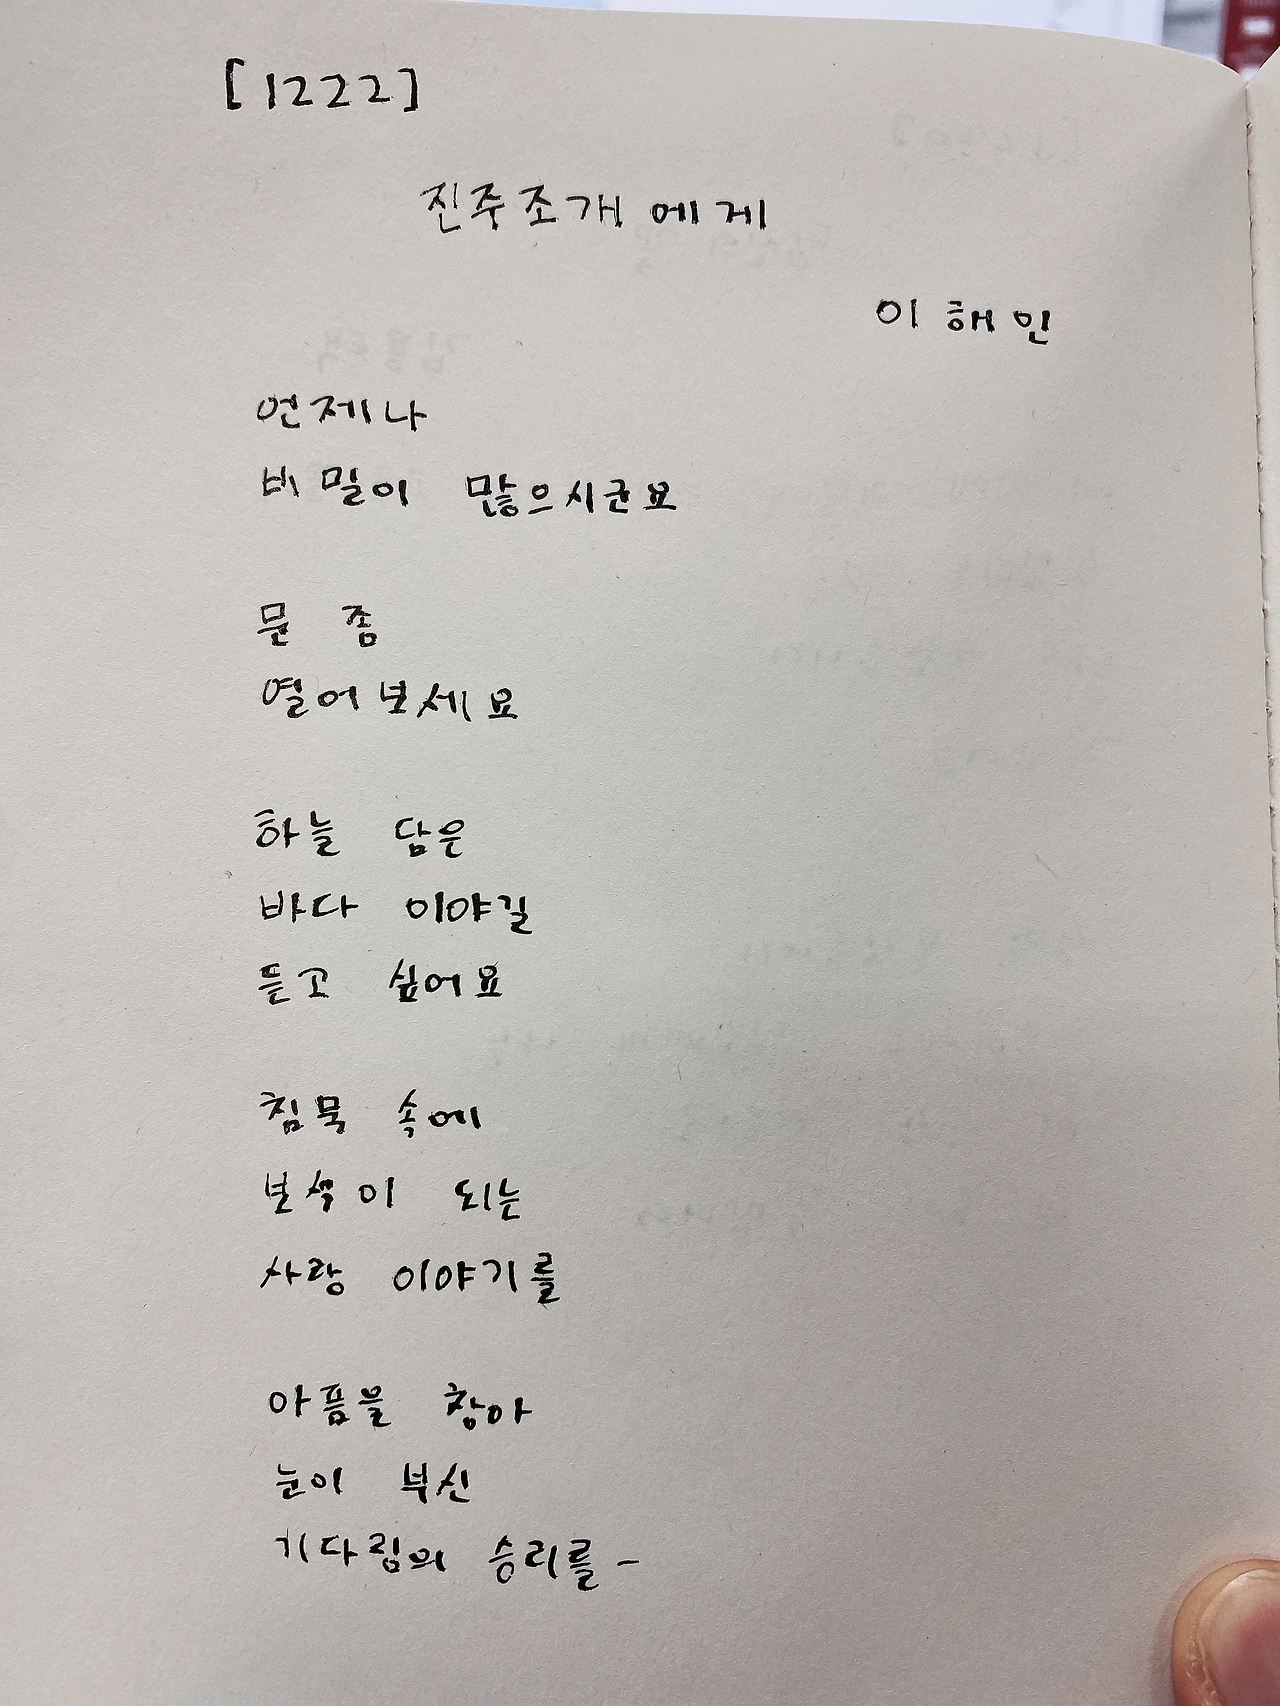 [1222]
진주조개에게
이해인
언제나
비밀이 많으시군요
문 좀
열어보세요
하늘 담은
바다 이야길
듣고 싶어요
침묵 속에
보석이 되는
사랑 이야기를
아픔을 참아
눈이 부신
기다림의 승리를-